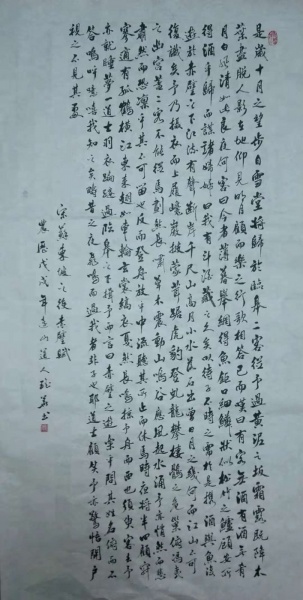 是歲十月之望步自雪堂將歸於臨皋二客從予過黃泥之坂霜露既降木
葉盡脫人影在地仰見明月顧而樂之行歌相答已而嘆曰有客無酒有酒無肴
月白風清如此良夜何客曰今者薄暮舉網得魚巨口細鱗狀似松江之鱸顧安所
得酒乎歸而謀諸婦婦曰我有斗酒藏之久矣以待子不時之需於是攜酒與魚復
遊於赤壁之下江流有聲斷岸千尺山高月小水落石出曾日月之幾何而江山不可
復識矣予乃攝衣而上履巉巖披蒙茸踞虎豹登虬龍攀棲鶻之危巢俯馮夷
之幽宮蓋二客不能從焉劃然長嘯草木震動山鳴谷應風起水湧予亦悄然而悲
肅然而恐凜乎其不可留也反而登舟放乎中流聽其所止而休焉時夜將半四顧寂
寥適有孤鶴橫江東來翅如車輪玄裳縞衣戛然長鳴掠予舟而西也須臾客去予
亦就睡夢一道士羽衣蹁躚過臨皋之下揖予而言曰赤壁之遊樂乎問其姓名俯而不
答嗚呼噫嘻我知之矣疇昔之夜飛鳴而過我者非子也耶道士顧笑予亦驚悟開戶
視之不見其處
宋蘇東坡之後赤壁賦
農曆戊戌年山道人書